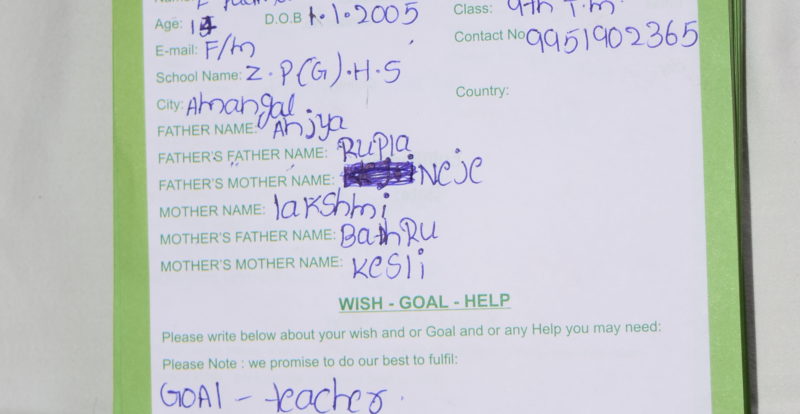 Age: 14 D.O.B 1.1.2005 Class: 9th T.m
E-mail: F/m Contact No 9951902365
School Name: Z.P(G).H.S
City: Amangal Country:
FATHER NAME: Anjya
FATHER'S FATHER NAME: RUPla
FATHER'S MOTHER NAME: NCJC
MOTHER NAME: lakshmi
MOTHER'S FATHER NAME: BathRU
MOTHER'S MOTHER NAME: KCSli
WISH - GOAL - HELP
Please write below about your wish and or Goal and or any Help you may need:
Please Note : we promise to do our best to fulfil:
GOAl - teacher.